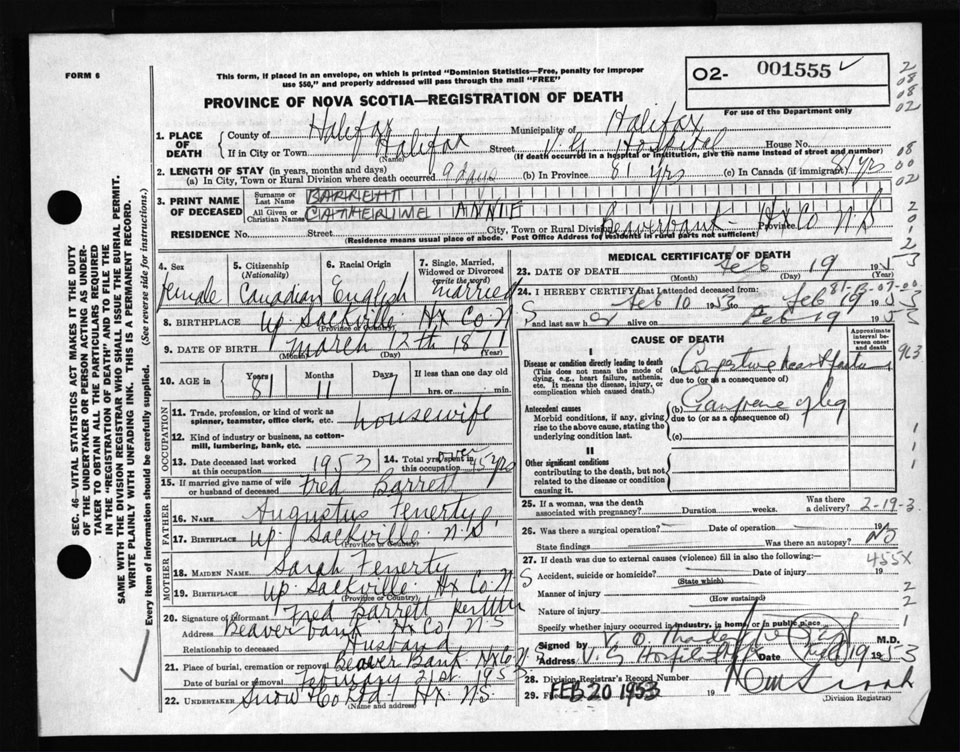 FORM 6
This form, if placed in an envelope, on which is printed "Dominion Statistics—Free, penalty for improper use $50," and properly addressed will pass through the mail "FREE"
O2- 001555 ✓
For use of the Department only
PROVINCE OF NOVA SCOTIA—REGISTRATION OF DEATH
1. PLACE OF DEATH { County of Halifax Municipality of Halifax
If in City or Town Halifax (Name) Street V.G. Hospital House No.
(If death occurred in a hospital or institution, give the name instead of street and number)
2. LENGTH OF STAY (in years, months and days)
(a) In City, Town or Rural Division where death occurred 9 days (b) In Province 81 yrs (c) In Canada (if immigrant) 81 yrs
3. PRINT NAME OF DECEASED { Surname or Last Name BARRETT
All Given or Christian Names CATHERINE ANNIE
RESIDENCE No. Street City, Town or Rural Division Beaverbank Hx Co Province N S
(Residence means usual place of abode. Post Office Address for residents in rural parts not sufficient)
4. Sex female
5. Citizenship (Nationality) Canadian
6. Racial Origin English
7. Single, Married, Widowed or Divorced (write the word) married
8. BIRTHPLACE Up. Sackville Hx Co. N S (Province or Country)
9. DATE OF BIRTH March 12th 1871 (Month) (Day) (Year)
10. AGE in Years 81 Months 11 Days 7 If less than one day old hrs. or min.
OCCUPATION
11. Trade, profession, or kind of work as spinner, teamster, office clerk, etc. housewife
12. Kind of industry or business, as cotton-mill, lumbering, bank, etc.
13. Date deceased last worked at this occupation 1953
14. Total yrs. spent in this occupation over 45 yrs
15. If married give name of wife or husband of deceased Fred Barrett
FATHER
16. NAME Augustus Fenerty
17. BIRTHPLACE Up. Sackville N.S. (Province or Country)
MOTHER
18. MAIDEN NAME Sarah Fenerty
19. BIRTHPLACE Up. Sackville Hx Co. N S (Province or Country)
20. Signature of informant Fred Barrett per
Address Beaver bank Hx Co N S
Relationship to deceased Husband
21. Place of burial, cremation or removal Beaver Bank Hx Co N S
Date of burial or removal February 21st 1953
22. UNDERTAKER Snow Co Ltd Hx N.S.
(Name and address)
MEDICAL CERTIFICATE OF DEATH
23. DATE OF DEATH Feb 19 1953
(Month) (Day)
81-B-07-00
24. I HEREBY CERTIFY that I attended deceased from:
Feb 10 1953 to Feb 19 1953
and last saw her alive on Feb 19 1953
CAUSE OF DEATH
Approximate interval between onset and death
I
Disease or condition directly leading to death (This does not mean the mode of dying, e.g., heart failure, asthenia, etc. It means the disease, injury, or complication which caused death.)
(a) Congestive heart failure
due to (or as a consequence of)
Antecedent causes
Morbid conditions, if any, giving rise to the above cause, stating the underlying condition last.
(b) Gangrene of leg
due to (or as a consequence of)
(c)
II
Other significant conditions
contributing to the death, but not related to the disease or condition causing it.
25. If a woman, was the death associated with pregnancy? Duration weeks. Was there a delivery? 2-19-3
26. Was there a surgical operation? Date of operation 19
State findings Was there an autopsy? No
27. If death was due to external causes (violence) fill in also the following:—
455X
Accident, suicide or homicide? (State which) Date of injury 19
Manner of injury (How sustained)
Nature of injury
Specify whether injury occurred in industry, in home, or in public place
Signed by V. O. M.D.
Address V. G. Hospital Date Feb 19 1953
28. Division Registrar's Record Number
29. FEB 20 1953 19
(Division Registrar)
SEC. 46—VITAL STATISTICS MAKES IT THE DUTY OF THE UNDERTAKER OR PERSON ACTING AS UNDERTAKER TO OBTAIN ALL THE PARTICULARS REQUIRED IN THE "REGISTRATION OF DEATH" AND TO FILE THE SAME WITH THE DIVISION REGISTRAR WHO SHALL ISSUE THE BURIAL PERMIT.
WRITE PLAINLY WITH UNFADING INK. THIS IS A PERMANENT RECORD.
Every item of information should be carefully supplied. (See reverse side for instructions.)
2
08
08
02
08
00
02
2
0
1
2
3
963
1
1
1
2
2
1